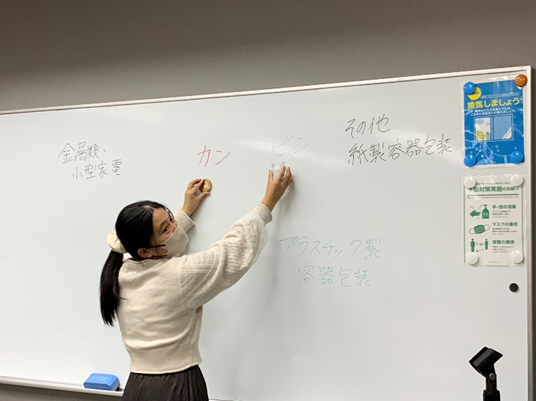 金属類・
小型家電
カン
ビン
その他
紙製容器包装
プラスチック製
容器包装
換気しましょう
手・指の消毒
マスクの着用
距離の確保